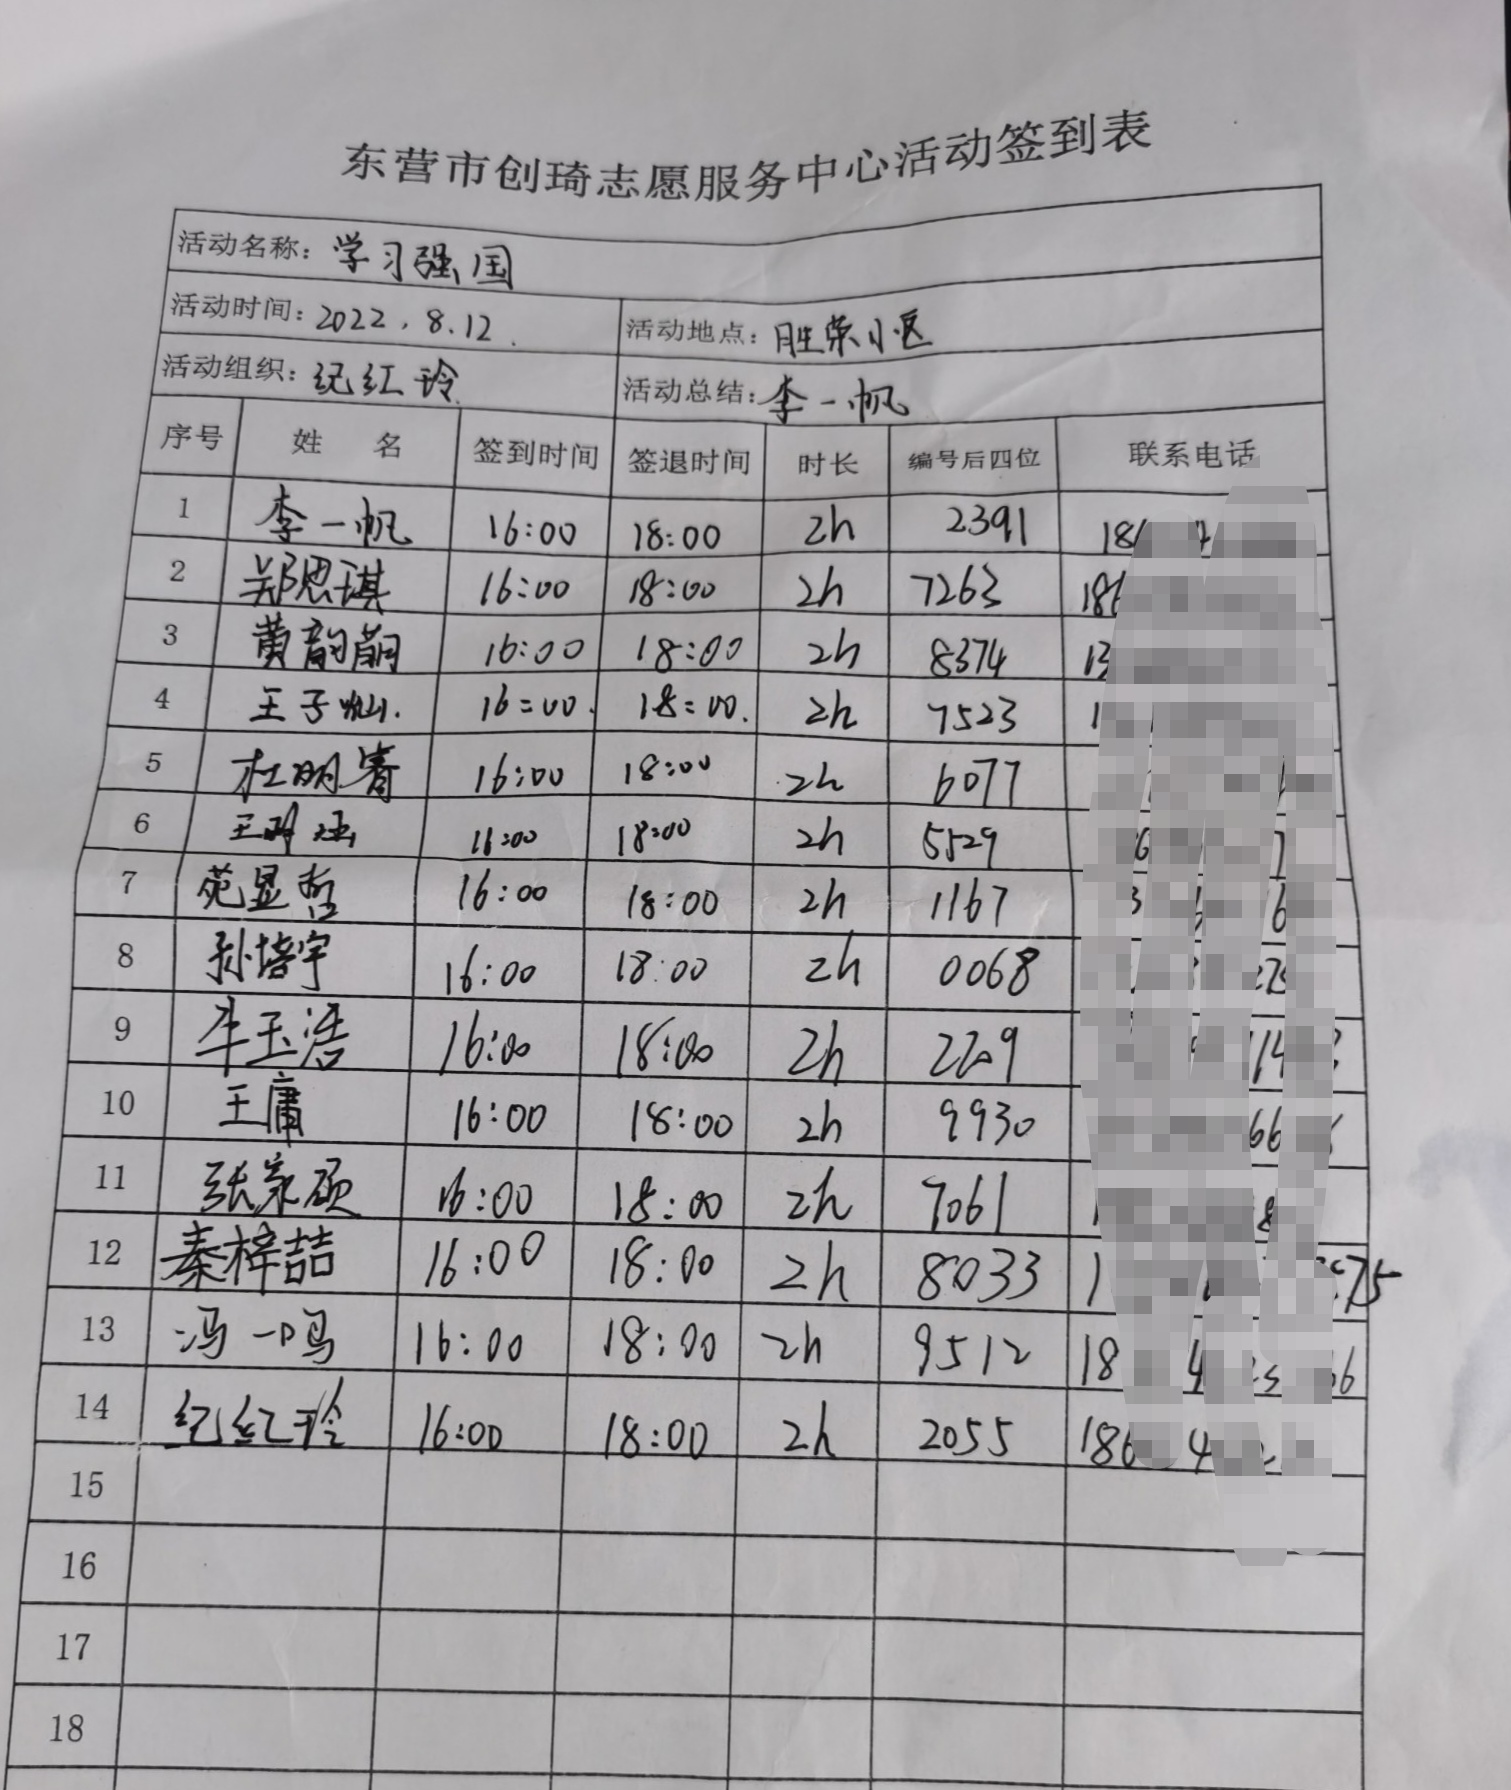 东营市创琦志愿服务中心活动签到表
活动名称：学习强国
活动时间：2022.8.12. 活动地点：胜荣小区
活动组织：纪红玲 活动总结：李一帆
序号 姓名 签到时间 签退时间 时长 编号后四位 联系电话
1 李一帆 16:00 18:00 2h 2391
2 郑思琪 16:00 18:00 2h 7263
3 黄韵萌 16:00 18:00 2h 8374
4 王子灿. 16:00. 18:00. 2h 7523
5 杜明 16:00 18:00 2h 6077
6 王 18:00 2h 5529
7 苑显哲 16:00 18:00 2h 1167
8 孙培宇 16:00 18:00 2h 0068
9 牛玉浩 16:00 18:00 2h 2209
10 王庸 16:00 18:00 2h 9930
11 张家硕 16:00 18:00 2h 7061
12 秦梓喆 16:00 18:00 2h 8033
13 冯一鸣 16:00 18:00 2h 9512
14 纪红玲 16:00 18:00 2h 2055
15
16
17
18